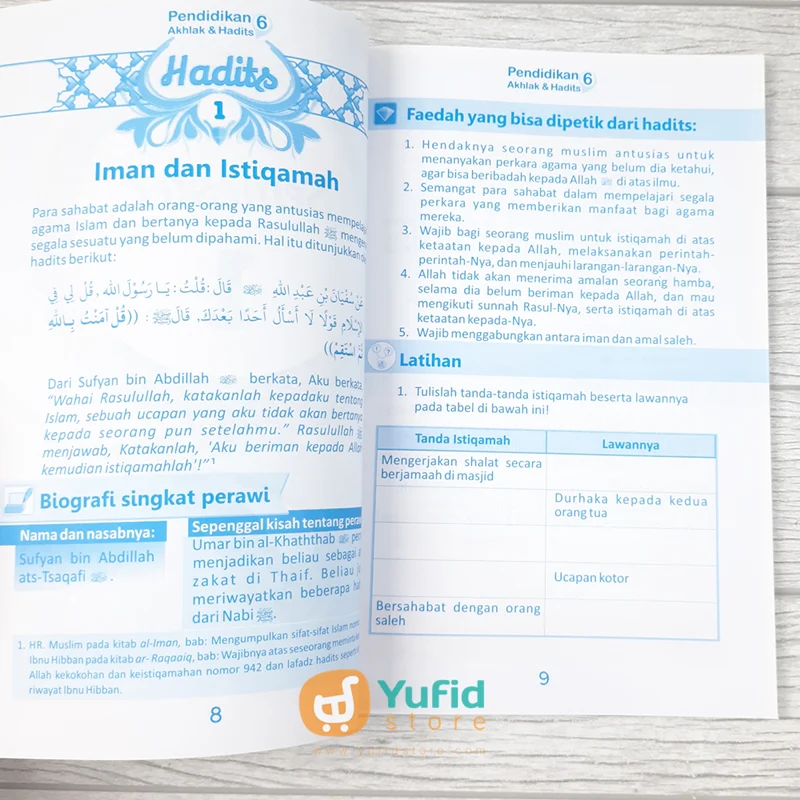 Pendidikan 6
Akhlak & Hadits
Hadits
1
Iman dan Istiqamah
Para sahabat adalah orang-orang yang antusias mempelaja
agama Islam dan bertanya kepada Rasulullah ﷺ menge
segala sesuatu yang belum dipahami. Hal itu ditunjukkan
hadits berikut:
عَنْ سُفْيَانَ بْنِ عَبْدِ اللهِ قَالَ: قُلْتُ: يَا رَسُوْلَ اللهِ، قُلْ لِي فِي
الإِسْلَامِ قَوْلًا لَا أَسْأَلُ أَحَدًا بَعْدَكَ، قَالَ ﷺ: ((قُلْ آمَنْتُ بِاللهِ
ثُمَّ اسْتَقِمْ))
Dari Sufyan bin Abdillah berkata, Aku berkata
"Wahai Rasulullah, katakanlah kepadaku tentang
Islam, sebuah ucapan yang aku tidak akan bertanya
kepada seorang pun setelahmu." Rasulullah ﷺ
menjawab, Katakanlah, 'Aku beriman kepada Allah
kemudian istiqamahlah'!"¹
Biografi singkat perawi
Nama dan nasabnya:
Sufyan bin Abdillah
ats-Tsaqafi .
Sepenggal kisah tentang peraw
Umar bin al-Khaththab per
menjadikan beliau sebagai a
zakat di Thaif. Beliau
meriwayatkan beberapa ha
dari Nabi ﷺ.
1. HR. Muslim pada kitab al-Iman, bab: Mengumpulkan sifat-sifat Islam nomor
Ibnu Hibban pada kitab ar- Raqaaiq, bab: Wajibnya atas seseorang meminta ke
Allah kekokohan dan keistiqamahan nomor 942 dan lafadz hadits seperti
riwayat Ibnu Hibban.
8
Pendidikan 6
Akhlak & Hadits
Faedah yang bisa dipetik dari hadits:
1. Hendaknya seorang muslim antusias untuk
menanyakan perkara agama yang belum dia ketahui,
agar bisa beribadah kepada Allah di atas ilmu.
2. Semangat para sahabat dalam mempelajari segala
perkara yang memberikan manfaat bagi agama
mereka.
3. Wajib bagi seorang muslim untuk istiqamah di atas
ketaatan kepada Allah, melaksanakan perintah-
perintah-Nya, dan menjauhi larangan-larangan-Nya.
4. Allah tidak akan menerima amalan seorang hamba,
selama dia belum beriman kepada Allah, dan mau
mengikuti sunnah Rasul-Nya, serta istiqamah di atas
ketaatan kepada-Nya.
5. Wajib menggabungkan antara iman dan amal saleh.
Latihan
1. Tulislah tanda-tanda istiqamah beserta lawannya
pada tabel di bawah ini!
Tanda Istiqamah
Lawannya
Mengerjakan shalat secara
berjamaah di masjid
Durhaka kepada kedua
orang tua
Ucapan kotor
Bersahabat dengan orang
saleh
9
Yufid
store
www.yufidstore.com